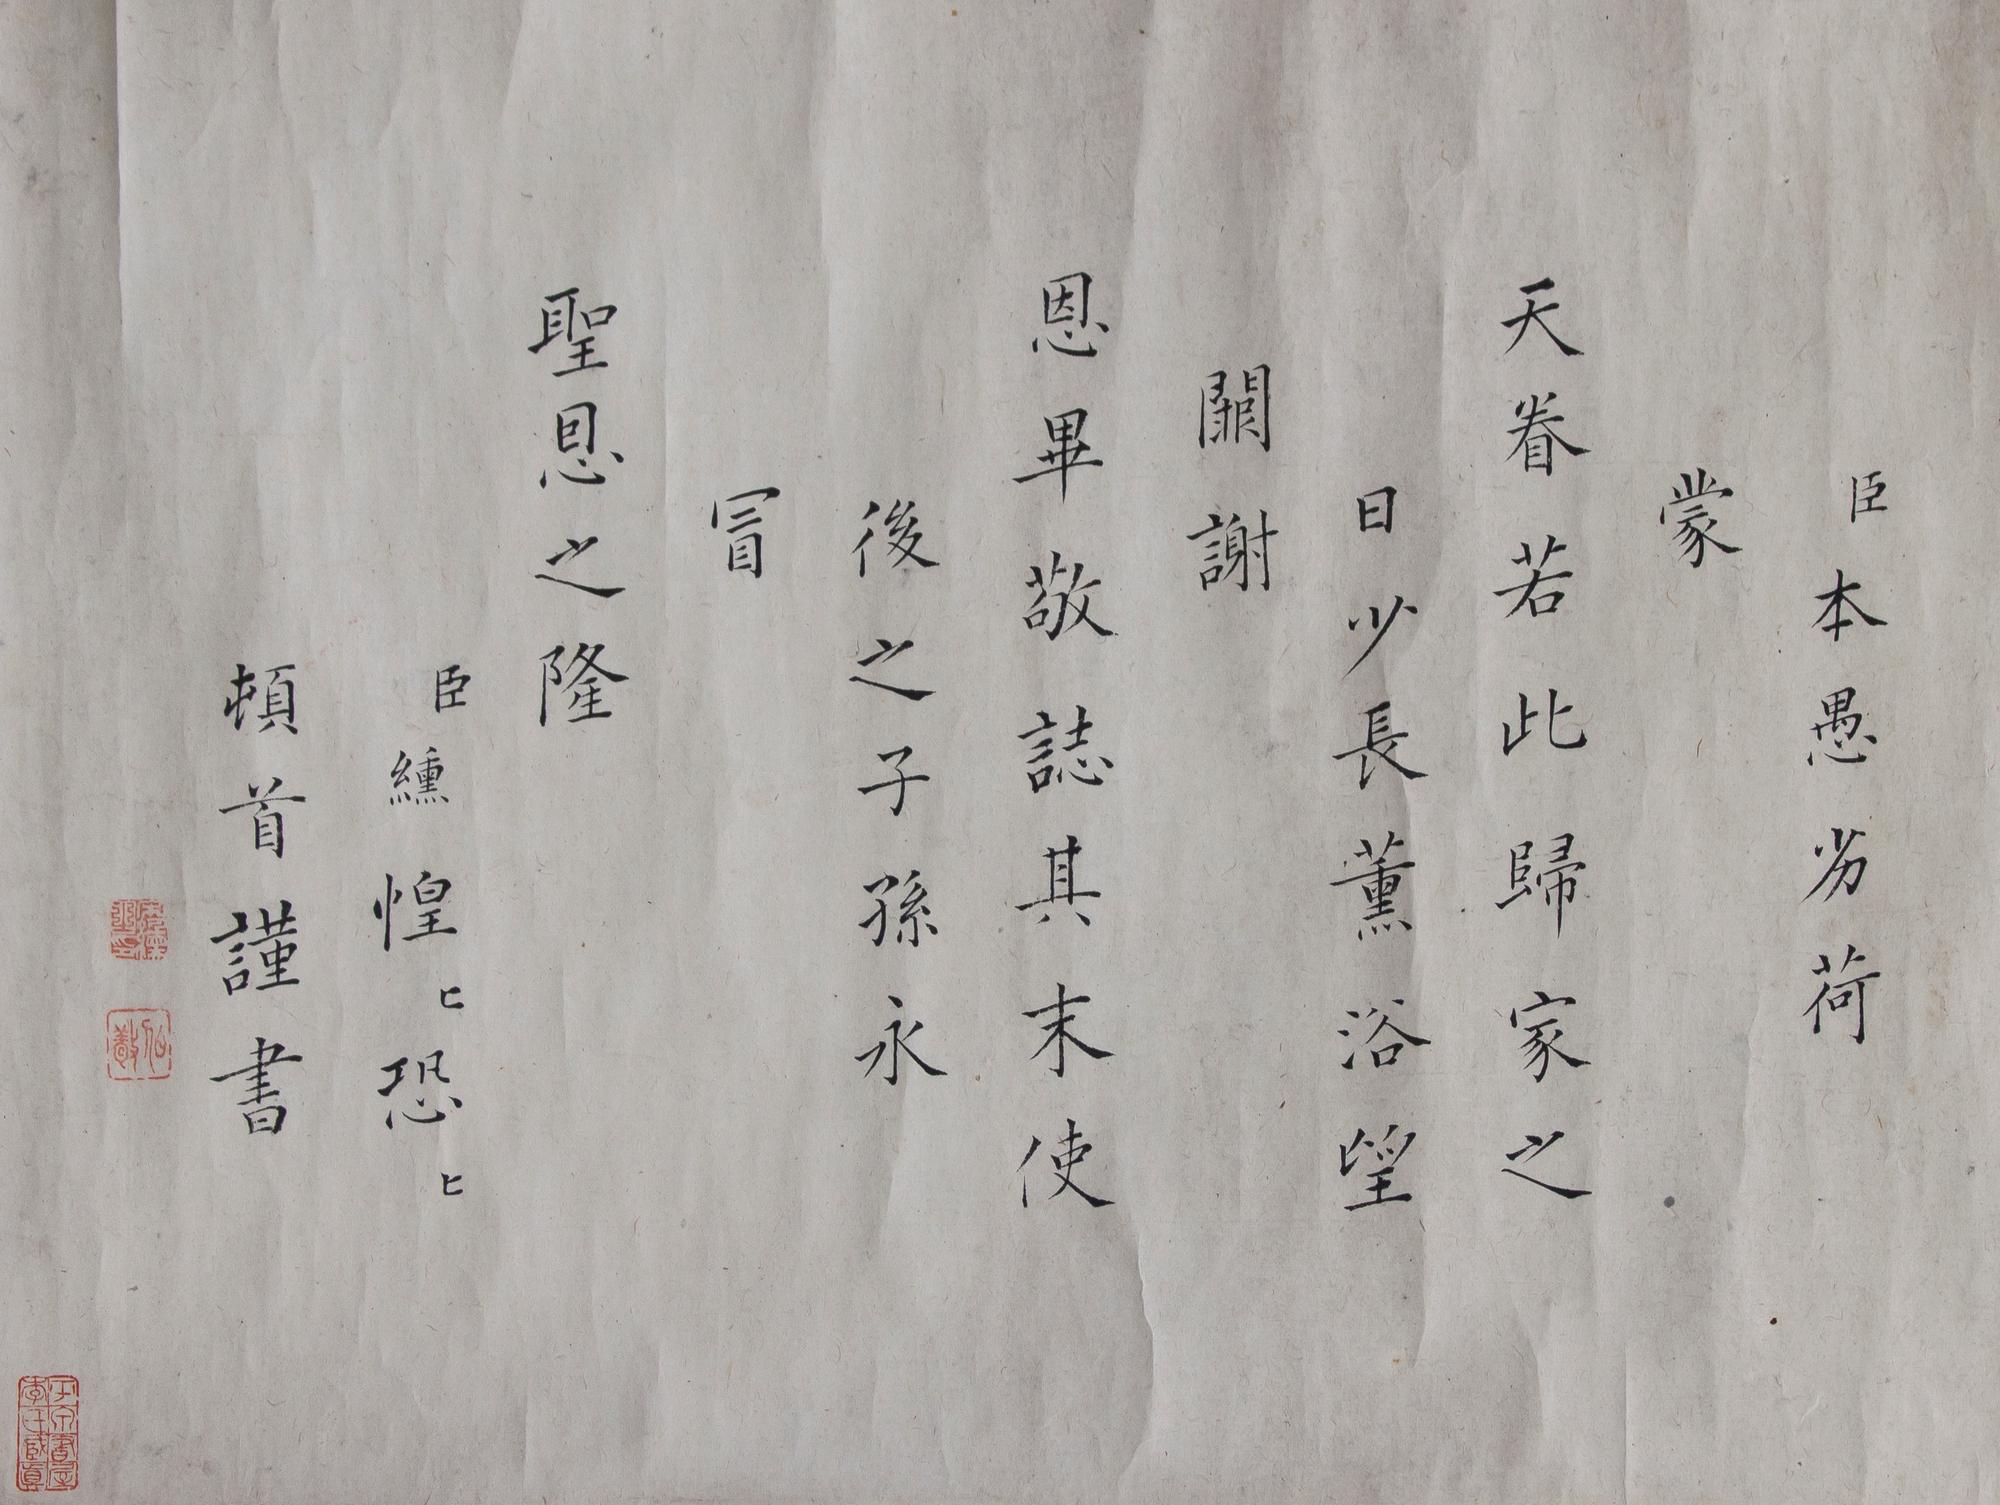 臣本愚劣荷
蒙
天眷若此歸家之
日少長薰浴望
闕謝
恩畢敬誌其末使
後之子孫永
冐
聖恩之隆
臣纁惶〻恐〻
頓首謹書